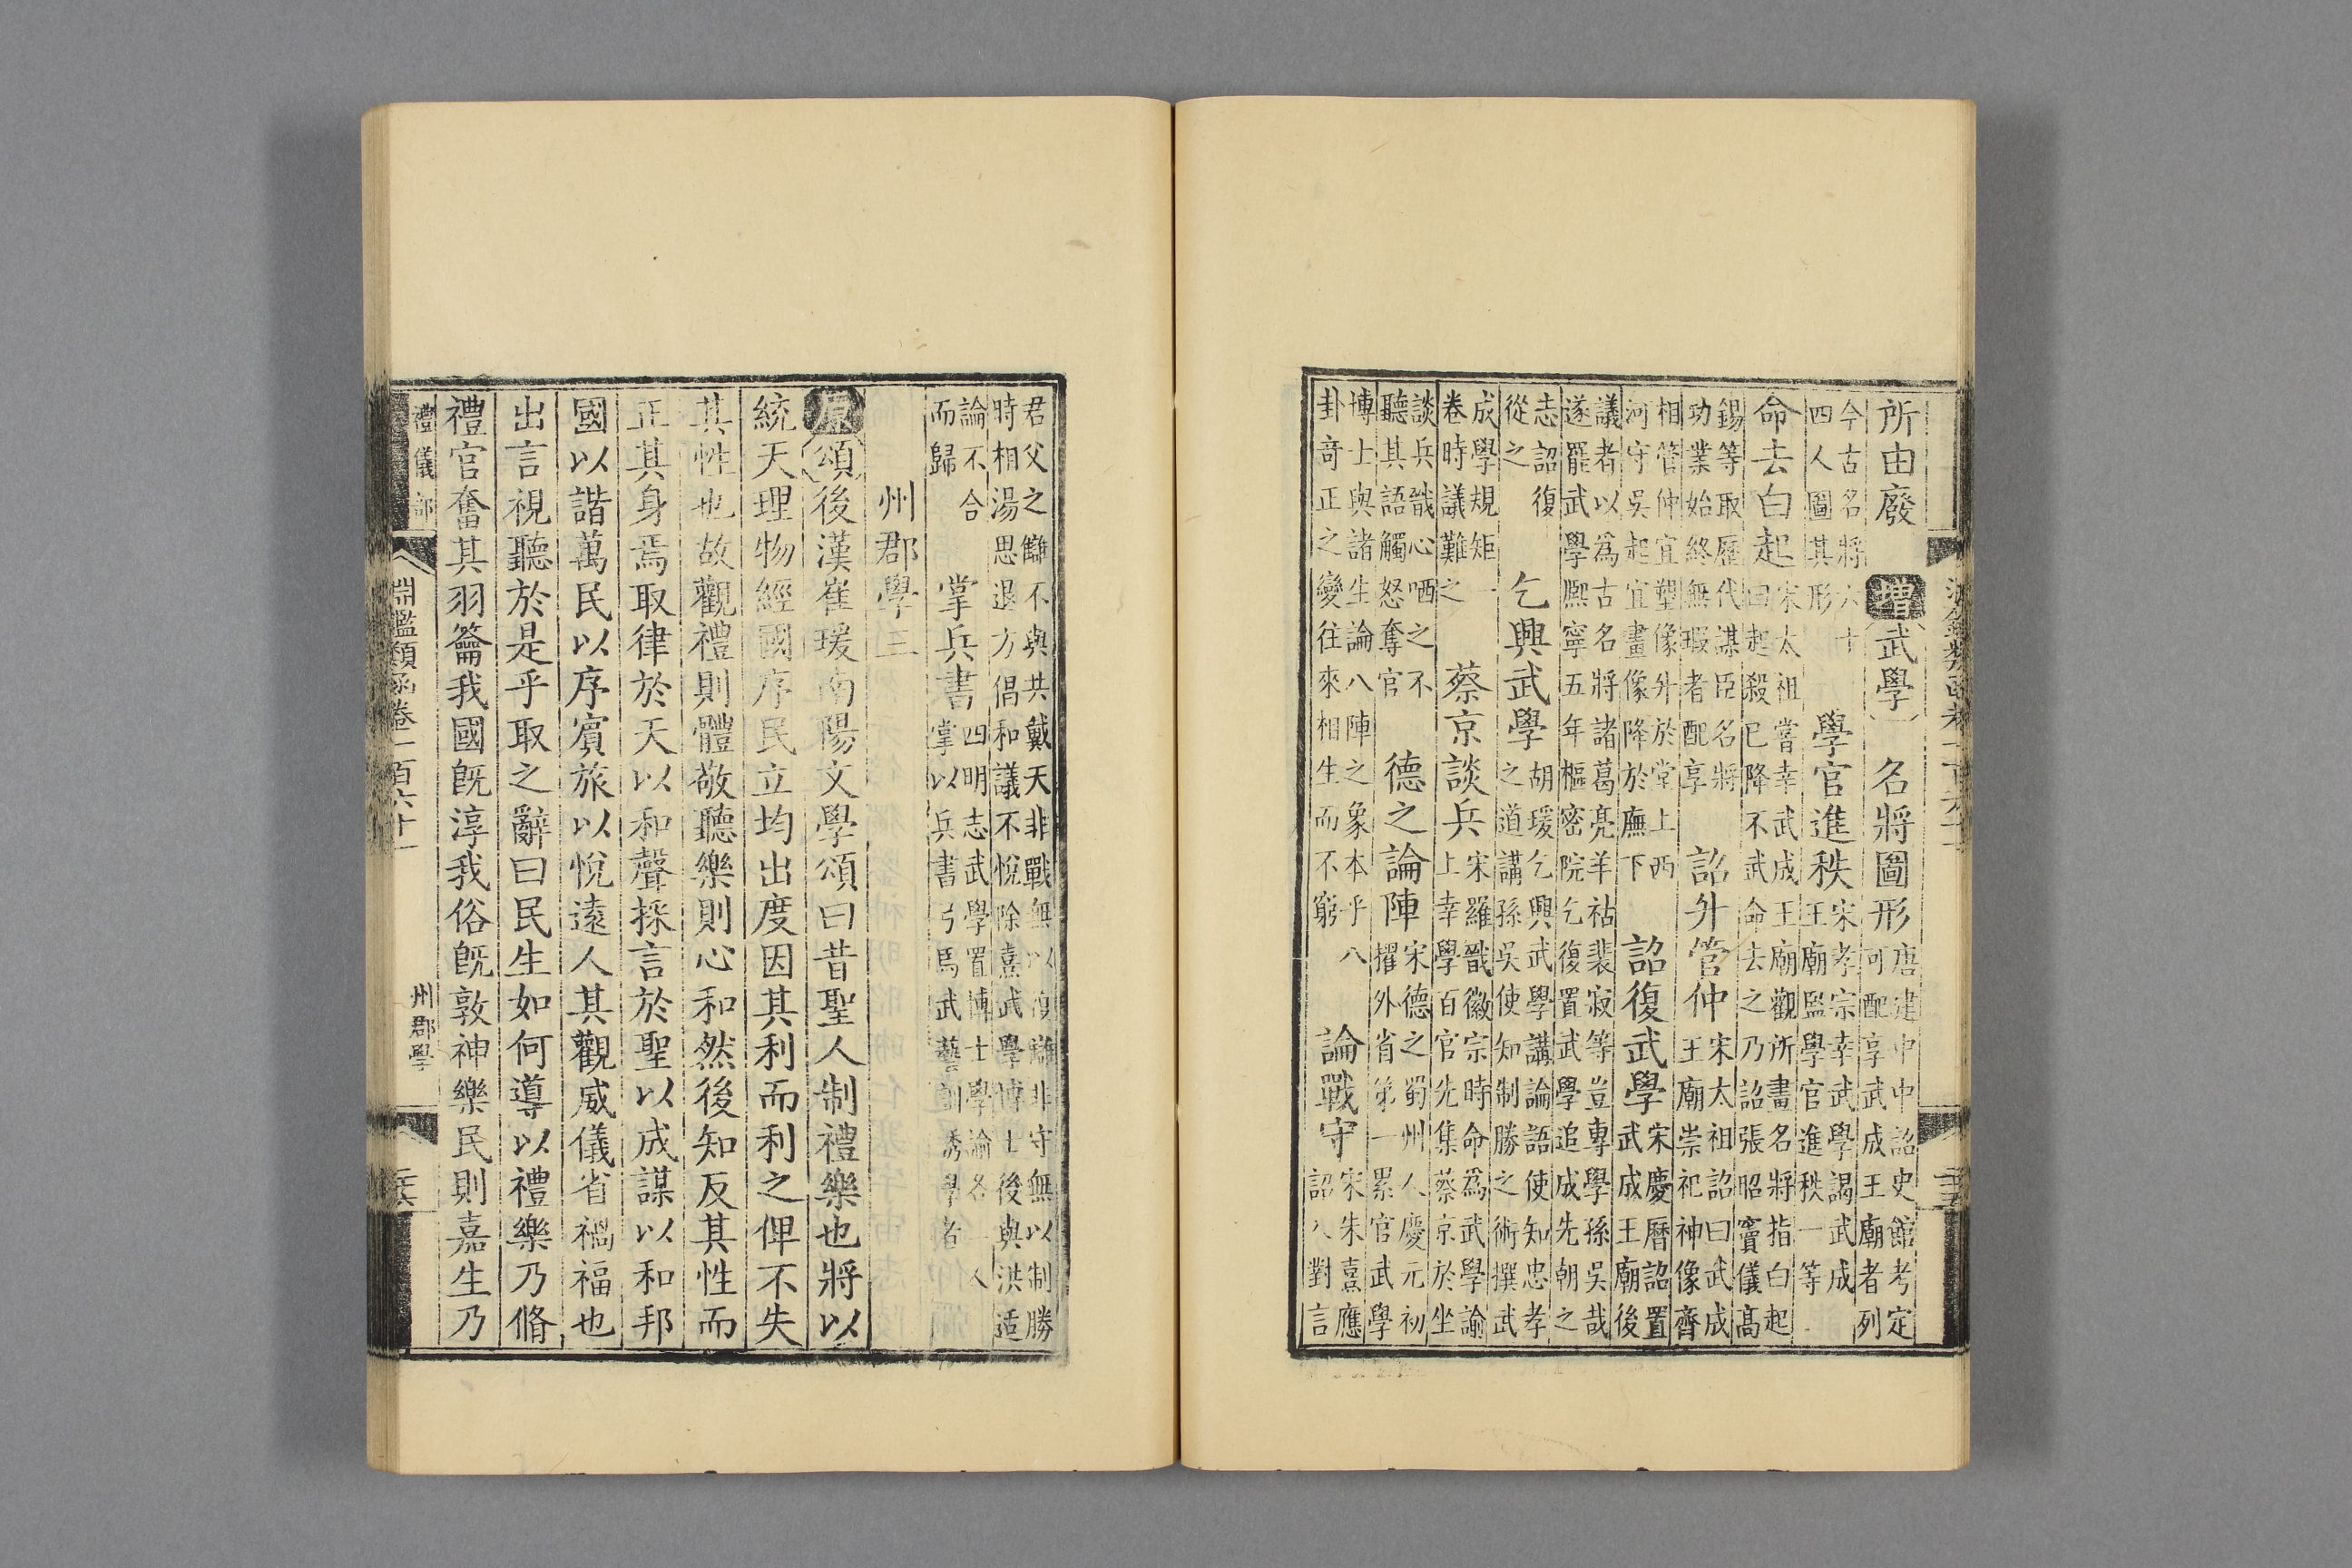 所由廢　增武學一　名將圖形　唐建中中詔史館考定
可配享武成王廟者列
今古名將六十
四人圖其形　學官進秩　宋孝宗幸武學謁武成
王廟監學官進秩一等
命去白起　宋太祖嘗幸武成王廟觀所畫名將指白起
曰起殺已降不武命去之乃詔張昭竇儀高
錫等取歷代謀臣名將
功業始終無瑕者配享　詔升管仲　宋太祖詔曰武成
王廟崇祀神像齊
相管仲宜塑像升於堂上西
河守吳起宜畫像降於廡下　詔復武學　宋慶曆詔置
武成王廟後
議者以為古名將諸葛亮羊祜裴寂等豈專學孫吳哉
遂罷武學熈寧五年樞密院乞復置武學追成先朝之
志詔復
從之　乞興武學　胡瑗乞興武學講論語使知忠孝
之道講孫吳使知制勝之術撰武
成學規矩一
卷時議難之　蔡京談兵　宋羅戩徽宗時命為武學諭
上幸學百官先集蔡京於坐
談兵戩心哂之不
聽其語觸怒奪官　德之論陣　宋德之蜀州人慶元初
擢外省第一累官武學
博士與諸生論八陣之象本乎八
卦竒正之變往來相生而不窮　論戰守　宋朱熹應
詔入對言
君父之讎不與共戴天非戰無以復讎非守無以制勝
時相湯思退方倡和議不悅除熹武學博士後與洪适
論不合
而歸　掌兵書　四明志武學置博士學諭各一人
掌以兵書弓馬武藝訓誘學者
州郡學三
原頌後漢崔瑗南陽文學頌曰昔聖人制禮樂也將以
統天理物經國序民立均出度因其利而利之俾不失
其性也故觀禮則體敬聽樂則心和然後知反其性而
正其身焉取律於天以和聲採言於聖以成謀以和邦
國以諧萬民以序賓旅以悅遠人其觀威儀省禍福也
出言視聽於是乎取之辭曰民生如何導以禮樂乃脩
禮官奮其羽籥我國旣淳我俗旣敦神樂民則嘉生乃
禮儀部　淵鑑類函卷一百六十一　州郡學　二十六